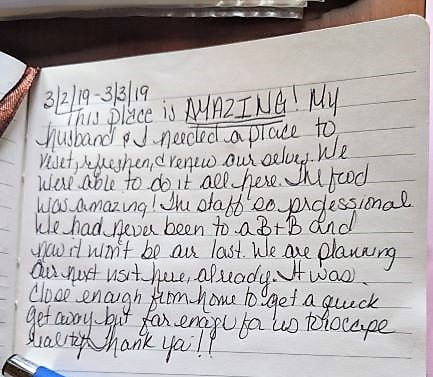 3/2/19-3/3/19
This place is AMAZING! My
husband & I needed a place to
reset, refreshen, & renew our selves. We
were able to do it all here. The food
was amazing! The staff so professional
We had never been to a B+B and
now it won't be our last. We are planning
our next visit here, already. It was
close enough from home to get a quick
get away but far enough for us to escape
reality. Thank you!!